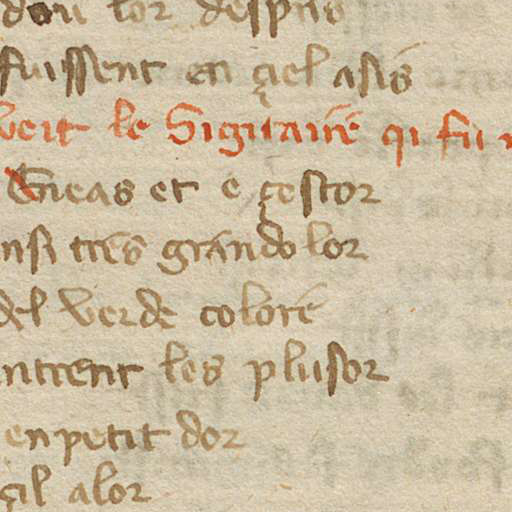 dou lor despris
fuissent en çiel asis
veit le Sigitaire qi fu
Eneas et e çestor
nsi tres grandolor
del verde colore
ntrent les plusor
en petit dor
çil alor